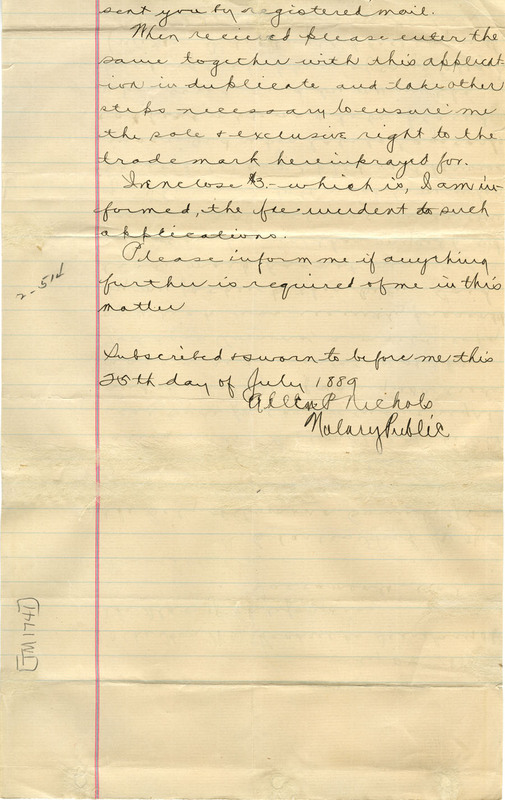 sent you by registered mail.
When recieved please enter the
same together with this applicat-
ion in duplicate and take other
steps necessary to ensure me
the sole & exclusive right to the
trademark herein prayed for.
I enclose $3.- which is, I am in-
formed, the fee incident to such
applications.
Please inform me if anything
further is required of me in this
matter
2-514
Subscribed & sworn to before me this
25th day of July 1889
Allen P Nichols
Notary Public
TM1741